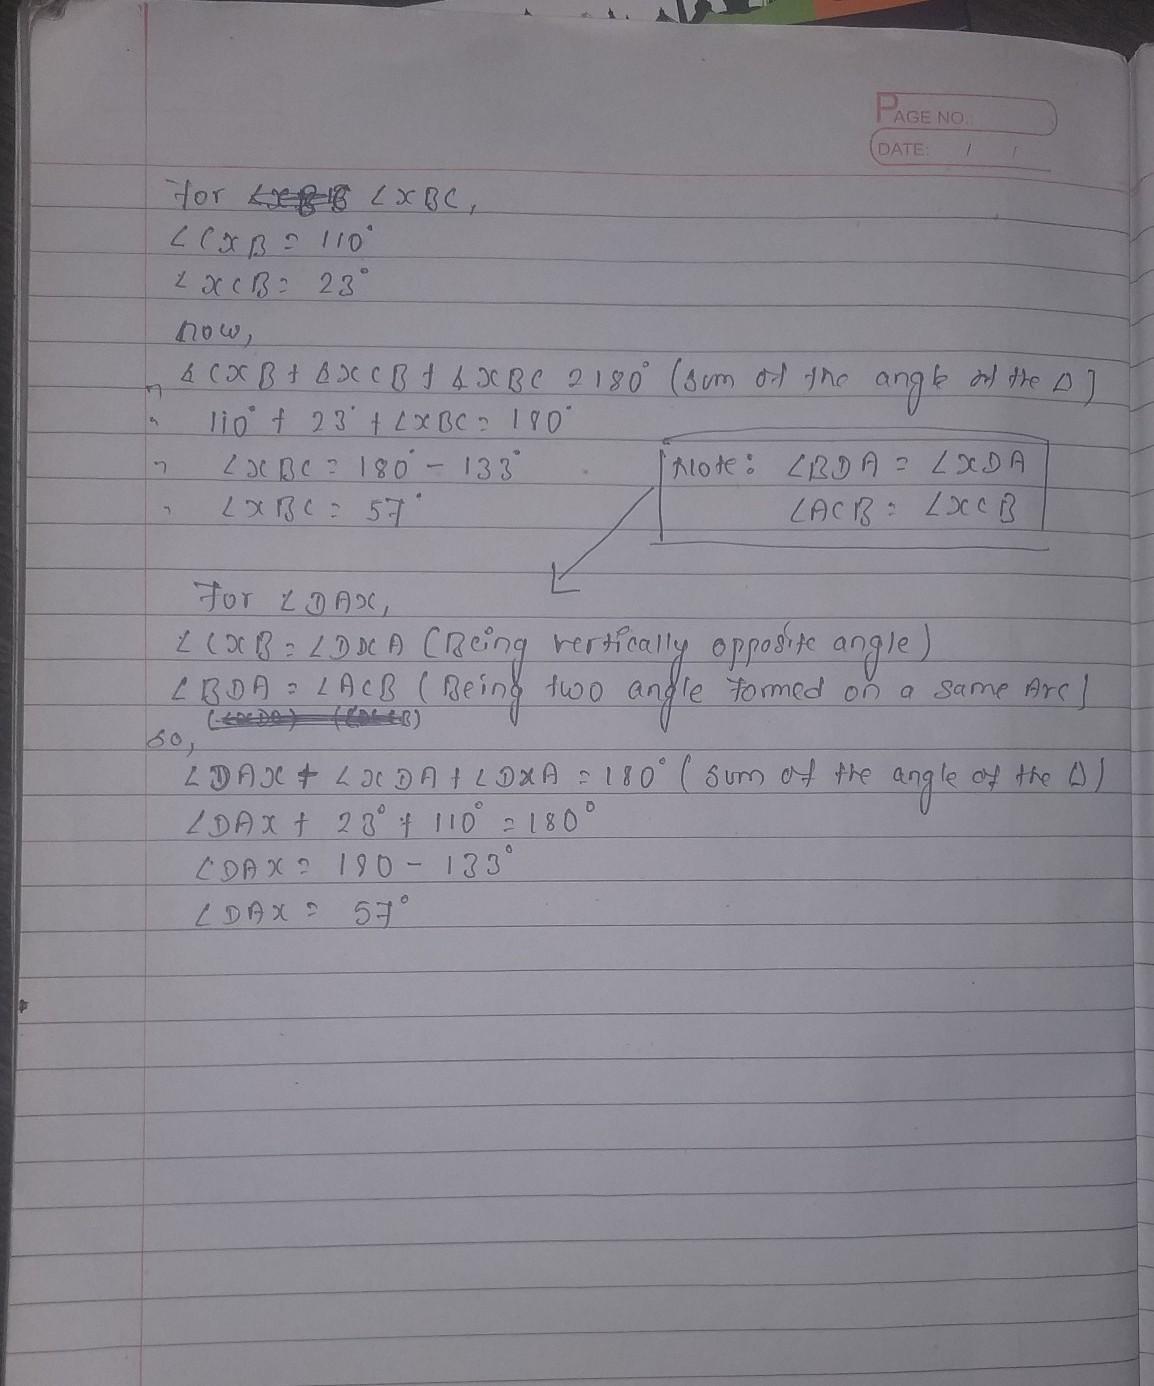 PAGE NO.:
DATE: / /
For ∠XBC,
∠CXB = 110°
∠XCB = 23°
now,
∠CXB + ∠XCB + ∠XBC = 180° (sum of the angle of the Δ)
110° + 23° + ∠XBC = 180°
∠XBC = 180° - 133°
∠XBC = 57°
Note: ∠BDA = ∠XDA
∠ACB = ∠XCB
For ∠DAX,
∠CXB = ∠DXA (Being vertically opposite angle)
∠BDA = ∠ACB (Being two angle formed on a same Arc)
so,
∠DAX + ∠XDA + ∠DXA = 180° (sum of the angle of the Δ)
∠DAX + 23° + 110° = 180°
∠DAX = 180 - 133°
∠DAX = 57°